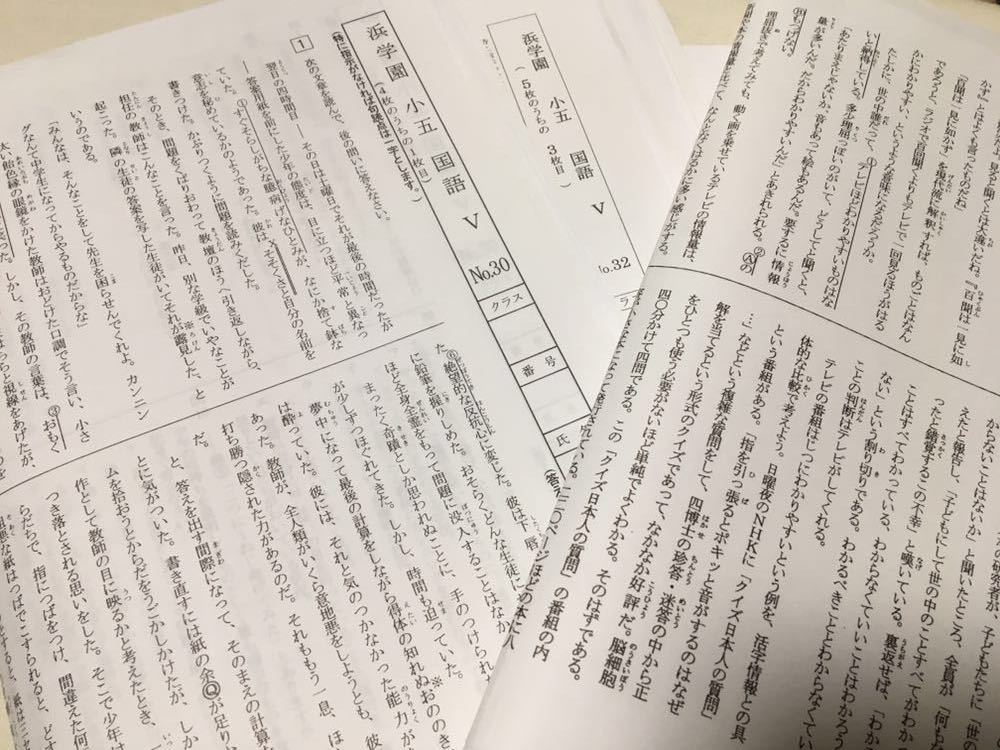 浜学園　小五　国語　Ⅴ　No.30
（4枚のうちの1枚目）
クラス
番号
氏
（特に指示がなければ句読点は一字とします。）
1　次の文章を読んで、後の問いに答えなさい。
翌日の四時間目――その日は土曜日でそれが最後の時間だったが
――答案用紙を前にした少年の態度は、目に立つほど平常と異なっ
ていた。①すぐそらしがちな臆病げなひとみが、なにか捨て鉢な
意志を秘めているかのようであった。彼は、そそくさと自分の名前を
書きつけた。かぶりつくように問題を読みくだした。
そのとき、問題をくばりおわって教壇のほうへ引き返しながら、
担任の教師はこんなことを言った。昨日、別な学級でいやなことが
起こった。隣の生徒の答案を写した生徒がいてそれが露見した、と
いうのである。
「みんなは、そんなことをして先生を困らせんでくれよ。カンニン
グなんて中学生になってからやるものだからな」
太い飴色縁の眼鏡をかけた教師はおどけた口調でそう言い、小さ
しかし、その教師の言葉は、③おもく
視線をあげたが、
た。⑥絶望的な反抗心に変じた。彼は下唇
に鉛筆を握りしめた。おそらくどんな生徒に
ほど全身全霊をもって問題に没入することはなか
まったく奇蹟としか思われぬことに、手のつけられ
が少しずつほぐれてきた。しかし、時間も迫っていた。
夢中になって最後の計算をしながら得体の知れぬ※おののき
は酔っていた。彼には、それと気のつかなかった能力が
あった。教師が、全人類がいくら意地悪をしようとも、
打ち勝つ隠された力があるのだ。それももう一息、
だ。
と、答えを出す間際になって、そのまえの計算
とに気がついた。書き直すには紙の余Ⓠが足り
ムを拾おうとからだをうごかしかけたが、しか
作として教師の目に映るかと考えたとき、
つき落とされる思いをした。そこで少年は
らだらで、指につばをつけ、間違えた何
な紙はつばでこすられると、ど
浜学園　小五　国語　Ⅴ
（5枚のうちの3枚目）
o.32
「百聞は一見に如かず」を現代流に解釈すれば、ものごとはなん
であろうと、ラジオで百回聞くよりもテレビで一回見るほうがはる
かにわかりやすい、というような意味になるだろうか。
たしかに、世の中誰だって、①テレビほどわかりやすいものはな
いと納得している。多少理屈っぽいのがいて、どうしてと聞くと、
「あたりまえじゃないか。音もあって絵もあるんだ。要するに情報
量が多いんだ。だからわかりやすいんだ」とあきれられる。②Ⓐの
動く画を乗せているテレビの情報量は、
えたと報告し、「子どもにして世の中のことすべてがわか
ったと錯覚するこの不幸」と嘆いている。裏返せば、「わか
ことはすべてわかっている、わからなくていいことはわかろう
ない」という割り切りである。わかるべきこととわからなくてい
ことの判断はテレビがしてくれる。
テレビの番組はじつにわかりやすいという例を、活字情報との具
体的な比較で考えよう。日曜夜のNHKに「クイズ日本人の質問」
という番組がある。「指を引っ張るとポキッと音がするのはなぜ
…」などという複雑な質問をして、四博士の珍答・迷答の中から正
解を当てるという形式のクイズであって、なかなか好評だ。脳細胞
をひとつも使う必要がないほど単純でよくわかる。そのはずである。
四〇分かけて四問である。この「クイズ日本人の質問」の番組の内